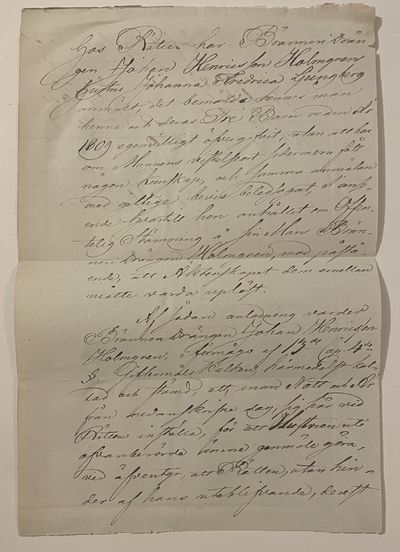 Hos Rätten har Bränneridrän-
gen Johan Henricsson Holmgrens
hustru Johanna Fredrica Ljungberg
anmält, det bemälde hennes man
henne och deras Tre Barn redan År
1809 egenvilligt öfvergifvit, utan att hon
om Mannens vistelseort sedermera fått
någon kunskap, och samma anmälan
med giltige bevis beledsagat, i anse-
ende hvartill hon anhållit om Offen-
telig Stämning å sin Man Brän-
neridrängen Holmgren, med påstå-
ende, att Äktenskapet dem emellan
måtte varda uplöst.
Af sådan anledning varder
Bränneridrängen Johan Henricsson
Holmgren, i förmågo af 13de Cap. 4de
§. Giftermåls Balken härmedelst kal-
lad och stämd, att, inom Natt och År
från nedanskrifne dag, sig här vid
Rätten inställa, för att Hustruen uti
ofvanberörde ämne genmäle göra,
ved äfventyr, att Rätten, utan hin-
der af hans uteblifvande, derest